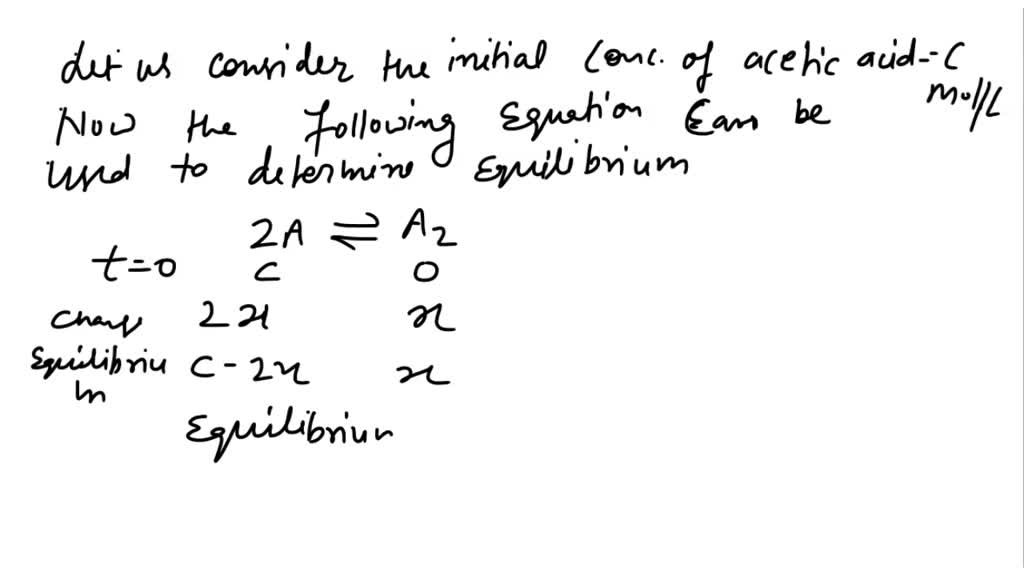 Let us consider the initial Conc. of acetic acid-C
mol/L
Now the following Equation Can be
used to determine Equilibrium
2A ⇌ A2
t=0 C 0
Chang 2x x
Equilibriu C-2x x
m
Equilibriun